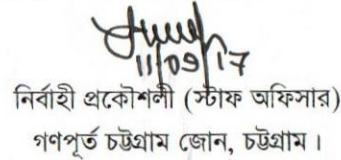 11/09/17
নির্বাহী প্রকৌশলী (স্টাফ অফিসার)
গণপূর্ত চট্টগ্রাম জোন, চট্টগ্রাম।